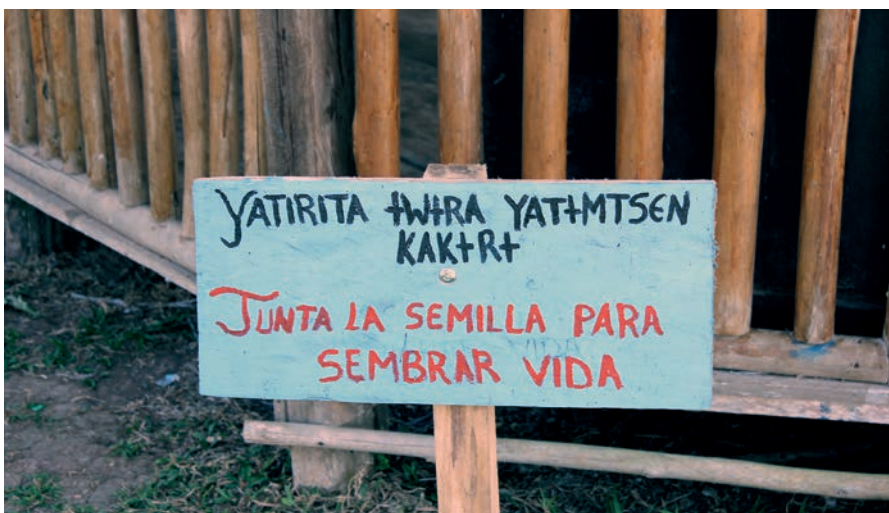 YATIRITA ƗWƗRA YATƗMTSEN
KAKƗRƗ
JUNTA LA SEMILLA PARA
SEMBRAR VIDA